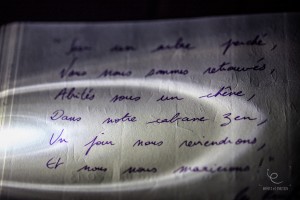 " Sur un arbre perché,
Nous nous sommes retrouvés,
Abrités sous un chêne,
Dans notre cabane Zen,
Un jour nous reviendrons,
Et nous nous marierons !